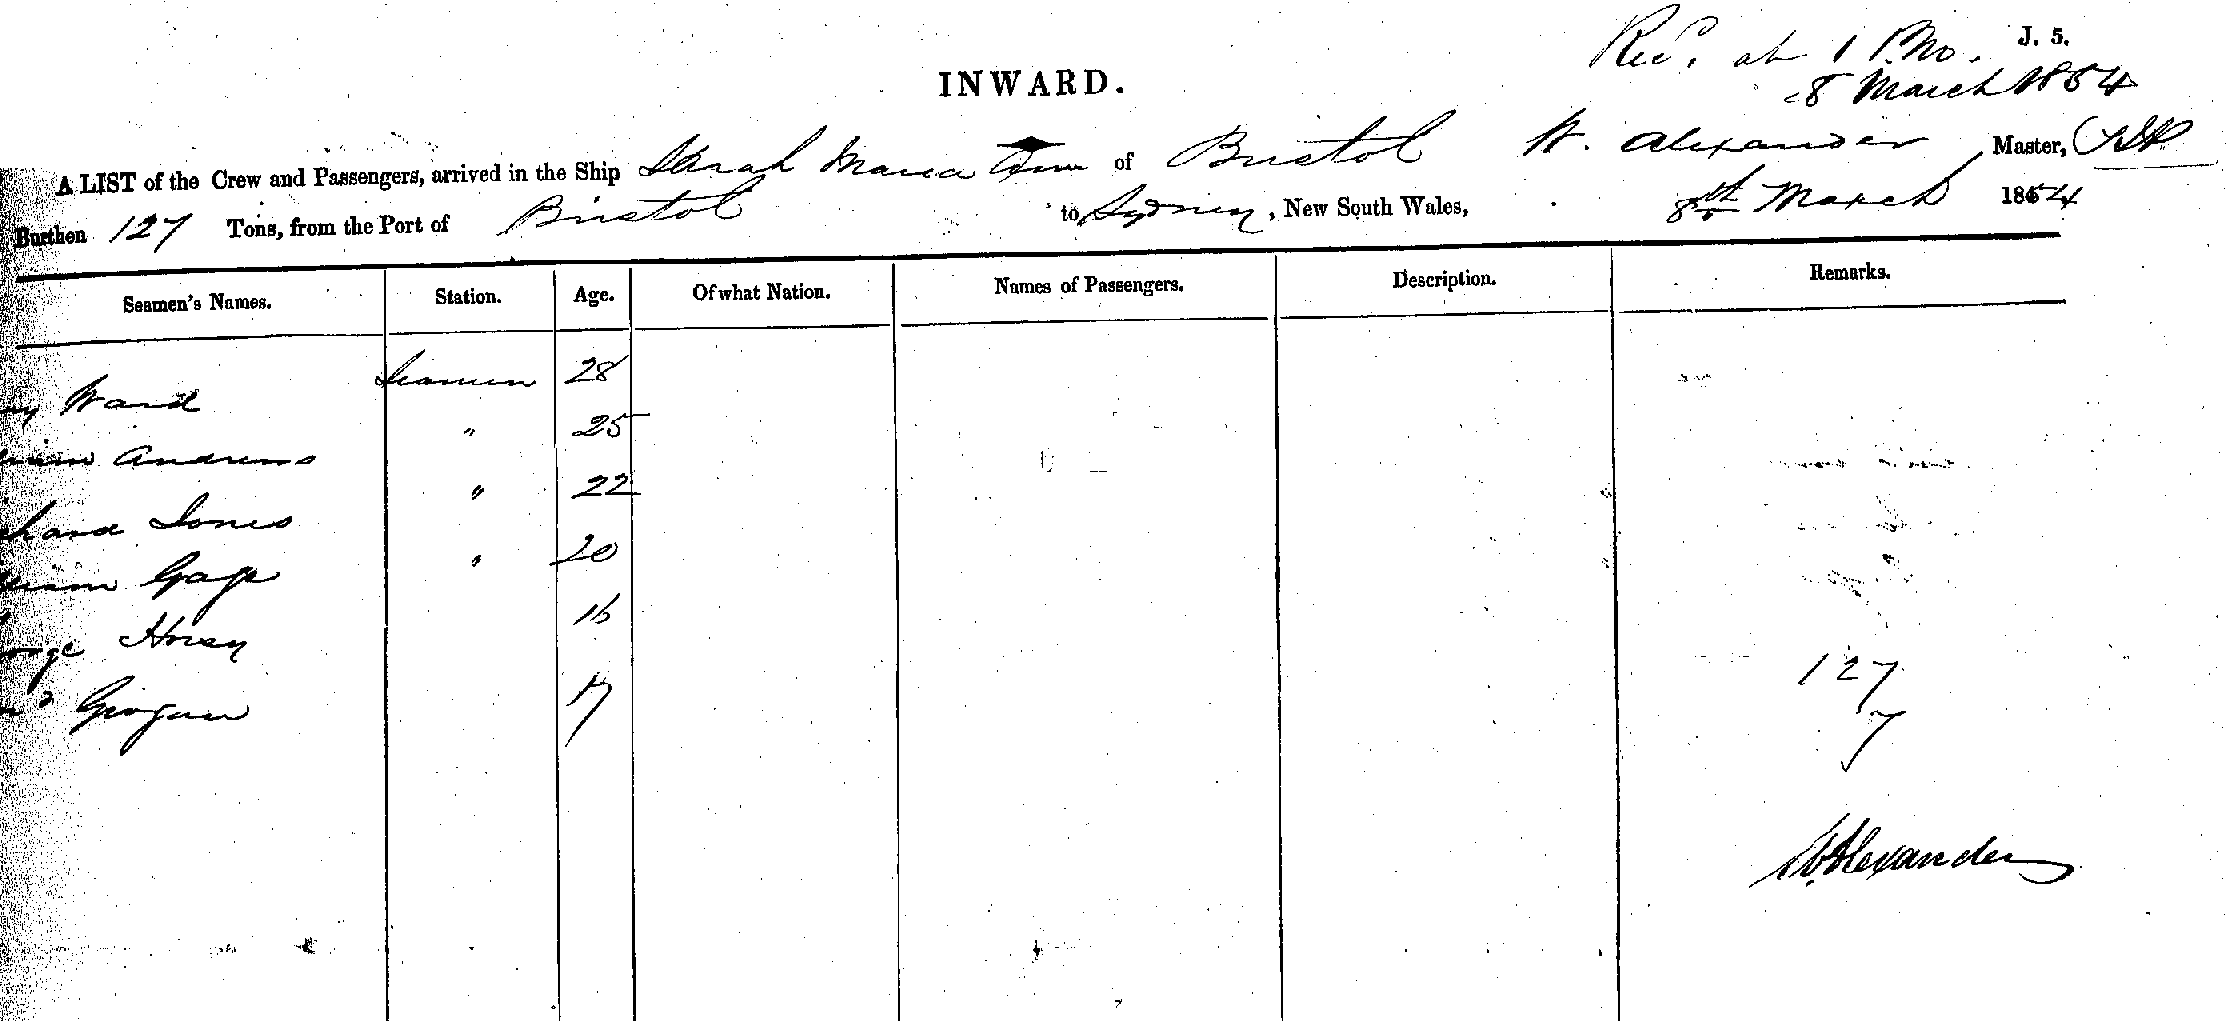 Recd. at 1 P.Mo. J. 5.
8 March 1854
INWARD.
A LIST of the Crew and Passengers, arrived in the Ship Sarah Maria Ann of Bristol W. Alexander Master,
Burthen 127 Tons, from the Port of Bristol to Sydney, New South Wales, 8th March 1854
Seamen's Names. Station. Age. Of what Nation. Names of Passengers. Description. Remarks.
Ward Seamen 28
Andrews " 25
Jones " 22
Gage " 20
16
17
127
7
W. Alexander